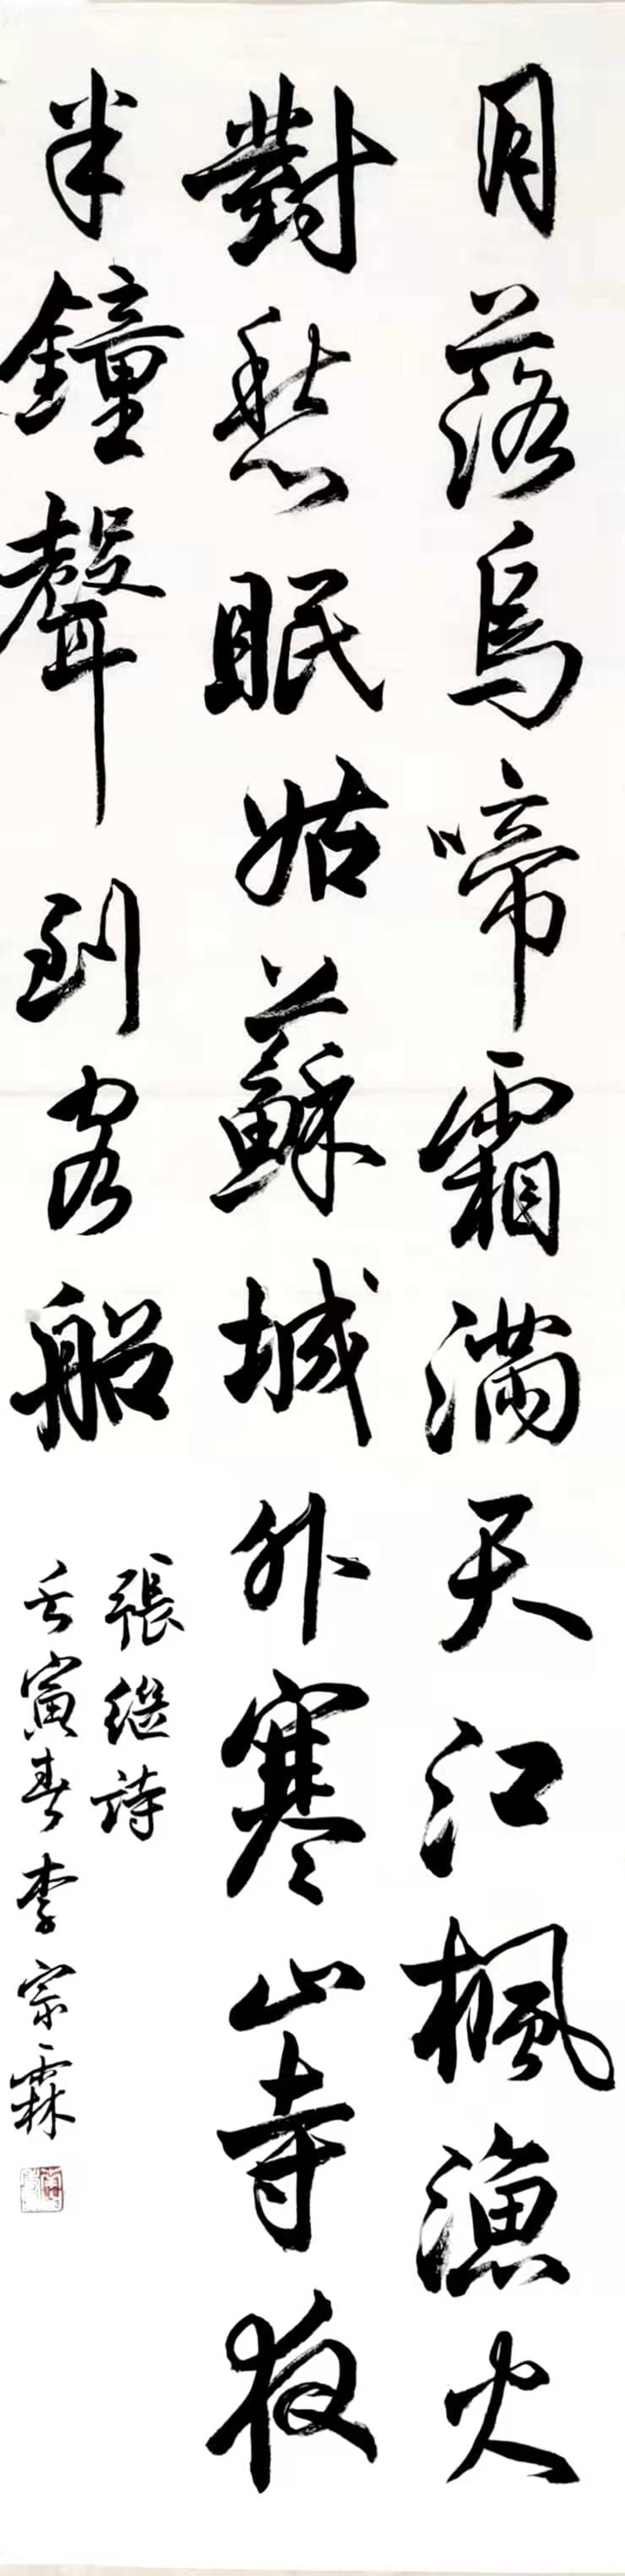 月落烏啼霜滿天江楓漁火
對愁眠姑蘇城外寒山寺夜
半鐘聲到客船
張繼詩
壬寅春李宗霖